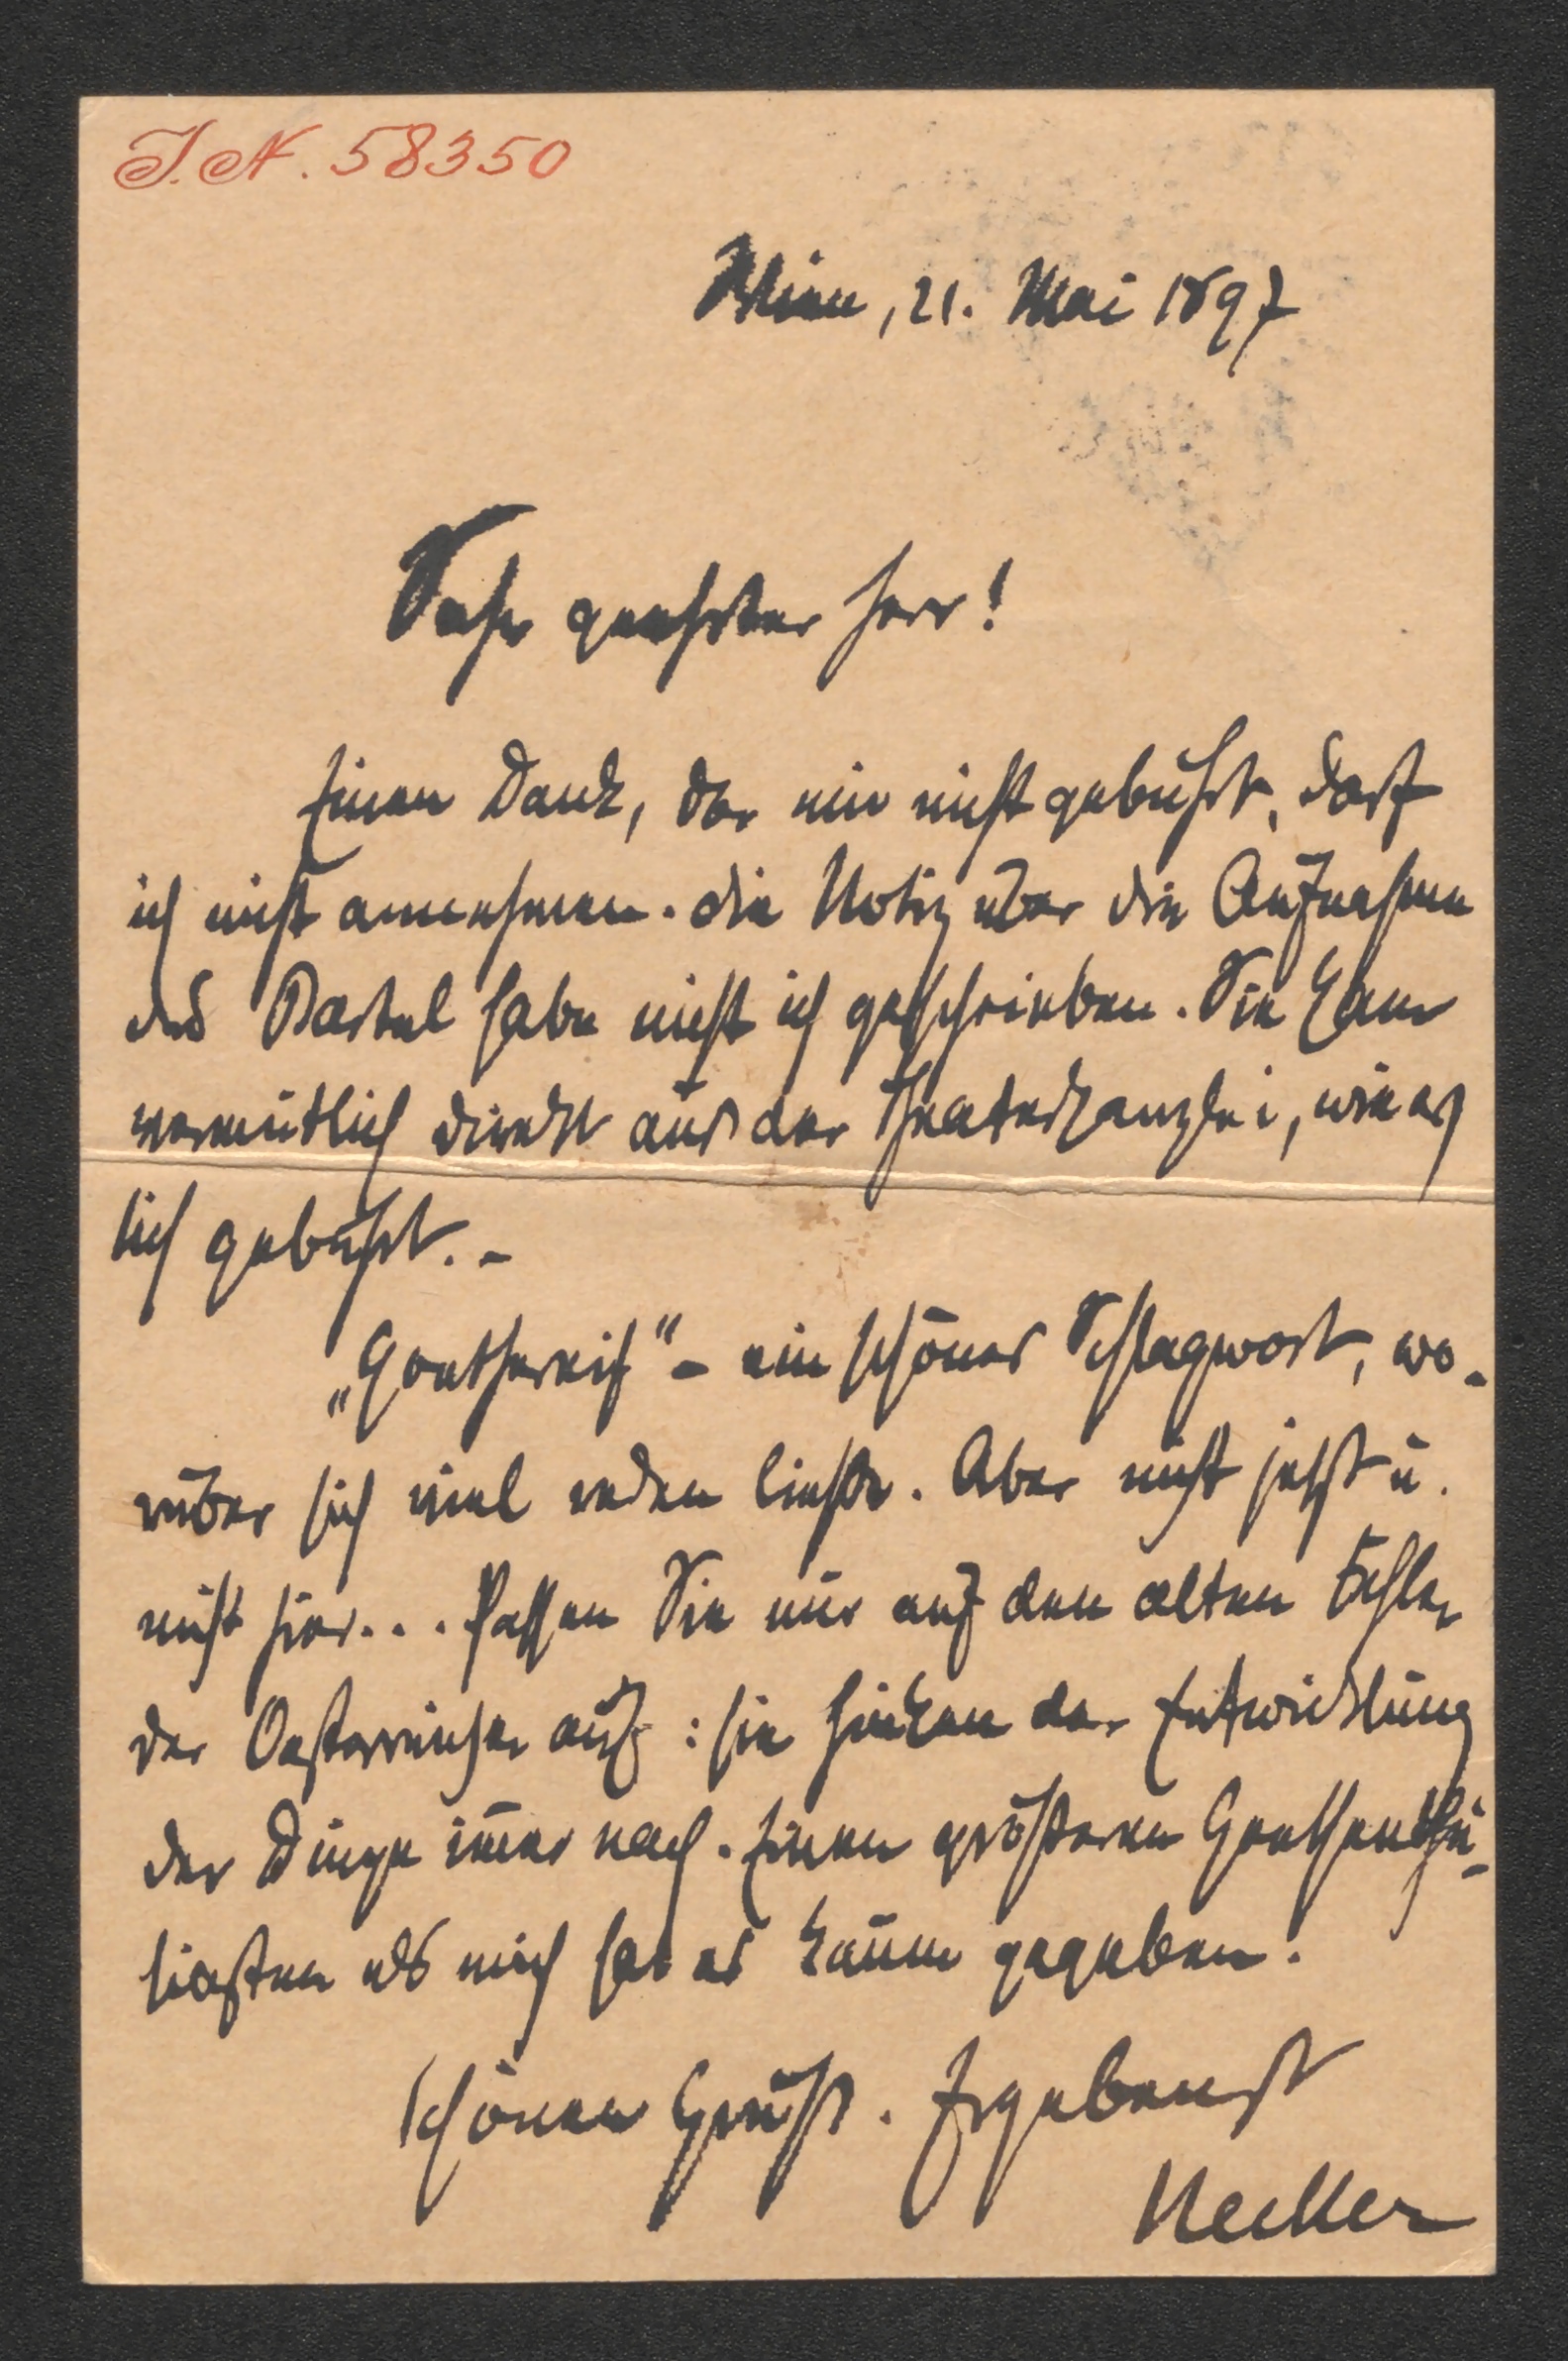 J.N. 58350
Wien, 21. Mai 1897
Sehr geehrter Herr!
Einen Dank, der mir nicht gebührt, darf
ich nicht annehmen. Die Notiz über die Aufnahme
des Bartel habe nicht ich geschrieben. Sie kam
vermutlich direkt aus der Theaterkanzlei, wie es
sich gebührt. -
„Goethereif“ - ein schönes Schlagwort, wo-
rüber sich viel reden ließe. Aber nicht jetzt u.
nicht hier... Passen Sie nur auf den alten Fehler
der Oesterreicher auf: sie hinken der Entwicklung
der Dinge im̅er nach. Einen größeren Goetheenthu-
siasten als mich hat es kaum gegeben.
Schönen Gruß. Ergebenst
Necker